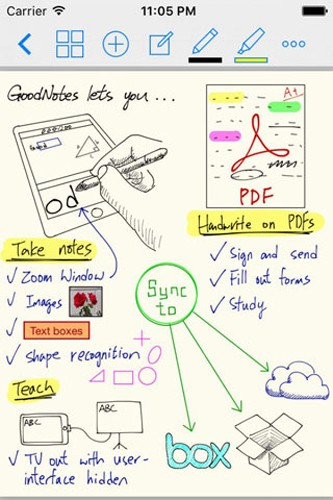 Carrier
11:05 PM
GoodNotes lets you...
Od
A+
PDF
Handwrite on PDFs
✓ Sign and send
✓ Fill out forms
✓ Study
Take notes
✓ Zoom Window
✓ Images
✓ Text boxes
✓ Shape recognition
Sync
to
Teach
ABC
ABC
✓ TV out with user-
interface hidden
box